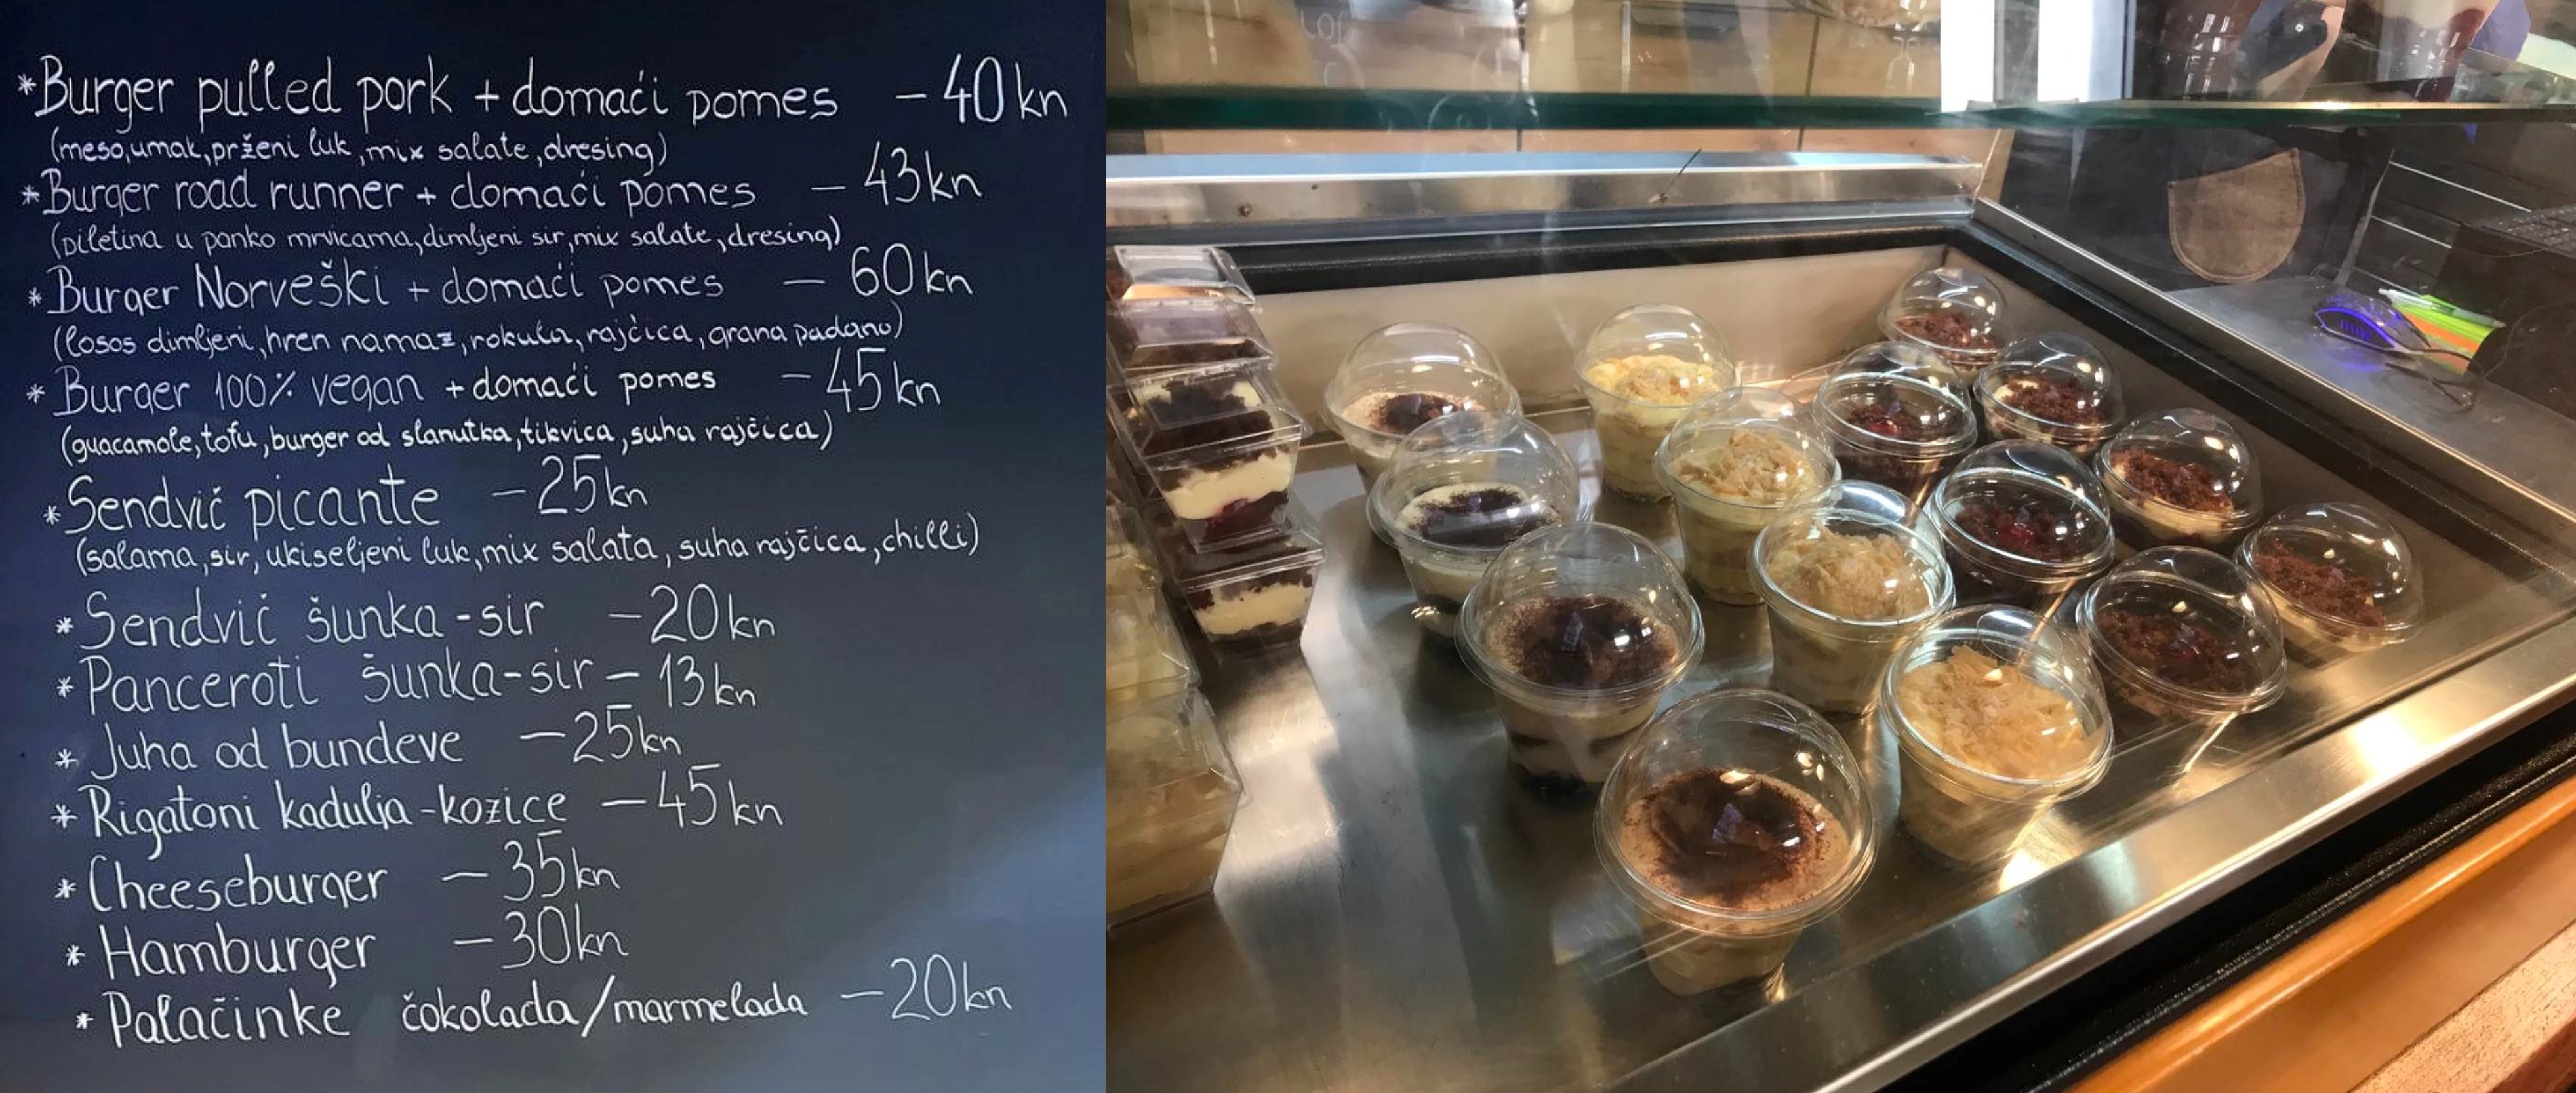 *Burger pulled pork + domaći pomes - 40 kn
(meso, umak, prženi luk, mix salate, dresing)
*Burger road runner + domaći pomes - 43 kn
(piletina u panko mrvicama, dimljeni sir, mix salate, dresing)
*Burger Norveški + domaći pomes - 60 kn
(losos dimljeni, hren namaz, rokula, rajčica, grana padano)
*Burger 100% vegan + domaći pomes - 45 kn
(guacamole, tofu, burger od slanutka, tikvica, suha rajčica)
*Sendvič picante - 25 kn
(salama, sir, ukiseljeni luk, mix salata, suha rajčica, chilli)
*Sendvič šunka-sir - 20 kn
*Panceroti šunka-sir - 13 kn
*Juha od bundeve - 25 kn
*Rigatoni kadulja-kozice - 45 kn
*Cheeseburger - 35 kn
*Hamburger - 30 kn
*Palačinke čokolada/marmelada - 20 kn